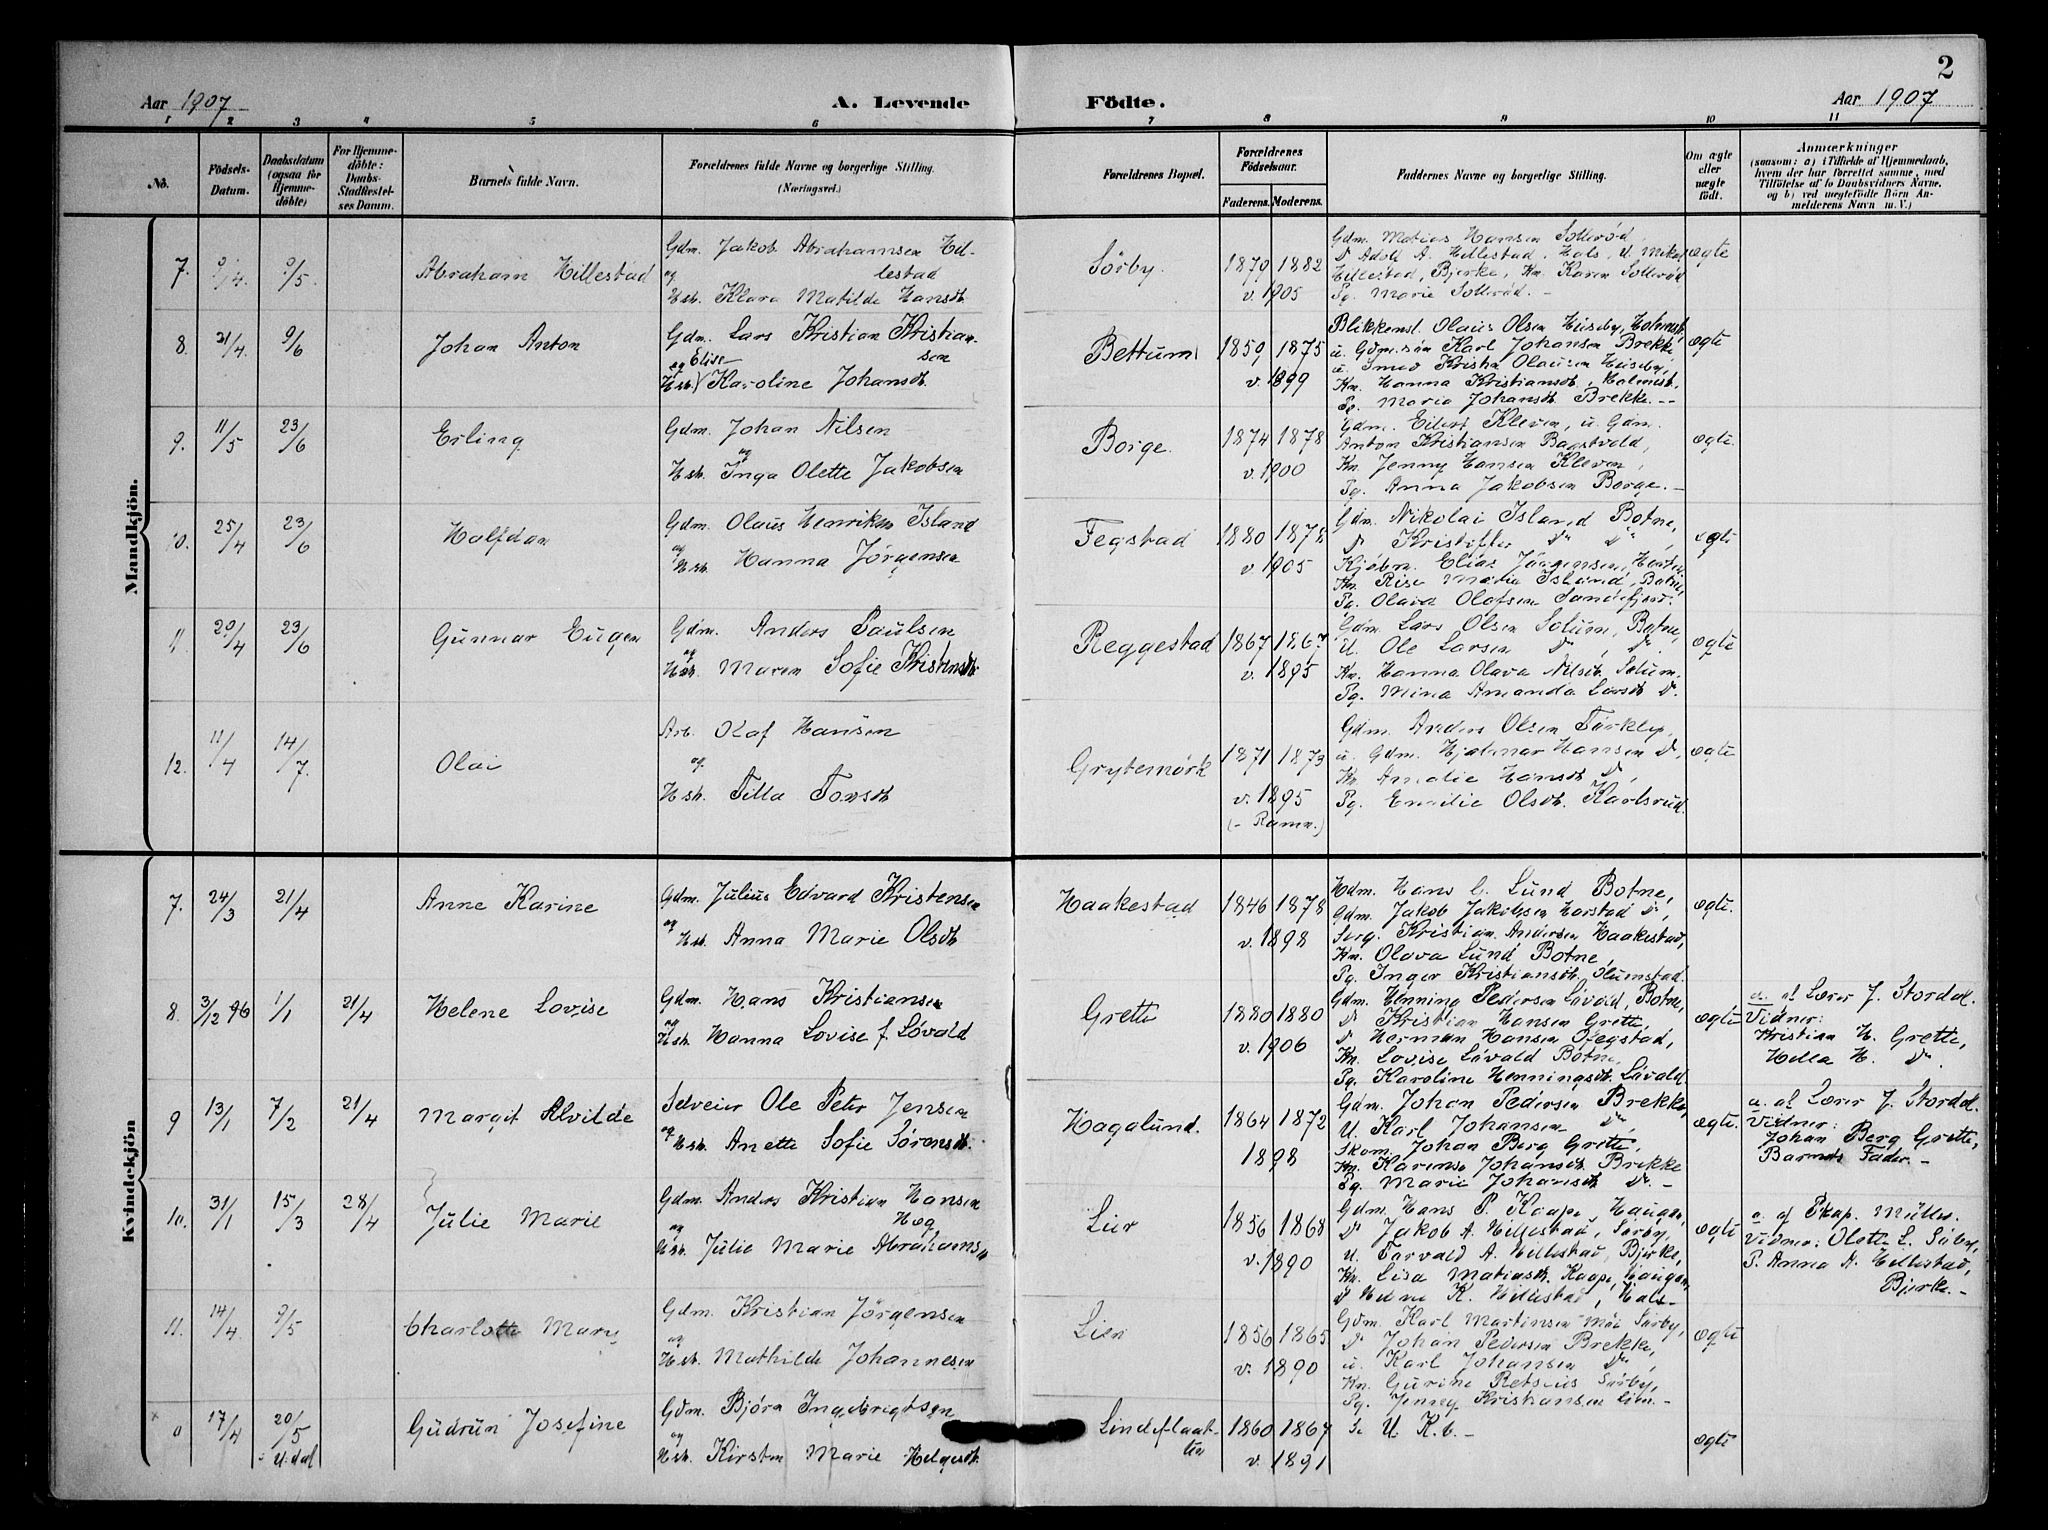 2
Aar 1907
A. Levende
Födte.
Aar 1907
1 2 3 4 5 6 7 8 9 10 11
No.
Födsels-
Datum.
Daabsdatum
(ogsaa for
Hjemme-
döbte)
For Hjemme-
döbte:
Daabs-
Stadfæstel-
ses Datum.
Barnets fulde Navn.
Forældrenes fulde Navne og borgerlige Stilling.
(Næringsvei.)
Forældrenes Bopæl.
Forældrenes
Födselsaar.
Faderens. Moderens.
Faddernes Navne og borgerlige Stilling.
Om ægte
eller
uægte
födt.
Anmærkninger
(saasom: a) i Tilfælde af Hjemmedaab,
hvem der har forrettet samme, med
Tilföielse af to Daabsvidners Navne,
og b) ved uægtefödte Börn An-
melderens Navn m. V.)
Mandkjön.
7. /4. /5. Abraham Hillestad
Gdm. Jakob Abrahamsen Hil-
lestad
og
Hstr. Klara Matilde Hansdt.
Sörby.
1879 1882
v. 1905
Gdm. Matias Hansen Sollerød,
Do Adolf A. Hillestad, Hals, U. Mikal
Hillestad, Bjerke, Kn. Karen Sollerød
Pg. Marie Sollerød. –
ægte
8. 21/4. 9/6 Johan Anton
Gdm. Lars Kristian Kristian-
sen
og Elise
Hstr. Karoline Johansdt.
Bettum
1859 1875
v. 1899
Blikkensl. Olaus Olsen Huseby, Holmestr.
u. Gdm.sön Karl Johansen Brekke,
u. Smed Kristian Olausen Huseby,
Kn. Hanna Kristiansdt., Holmestr.
Pg. Maria Johansdt. Brekke. –
ægte
9. 11/5 23/6 Erling
Gdm. Johan Nilsen
og
Hstr. Inga Olette Jakobsen
Borge.
1874 1878
v. 1900
Gdm. Eilert Kleven, u. Gdm.
Anton Kristiansen Bogstvold,
Kn. Jenny Hansen Kleven,
Pg. Anna Jakobsen Borge. –
ægte.
10. 25/4 23/6 Halfdan
Gdm. Olaus Henriksen Island
og
Hstr. Hanna Jörgensen
Tegstad
1880 1878
v. 1905
Gdm. Nikolai Island Botne,
Do Kristoffer Do Do,
Kjøbm. Elias Jörgensen, Horten,
Kn. Rise Maria Island, Botne,
Pg. Olava Olafsen Sandefjord.
ægte
11. 20/4 23/6 Gunnar Eugen
Gdm. Anders Paulsen
og
Hstr. Maren Sofie Kristensdt.
Reggestad
1867 1867
v. 1895
Gdm. Lars Olsen Solum, Botne,
U. Ole Larsen Do, Do.
Kn. Hanna Olava Nilsdt. Solum.
Pg. Mina Amanda Larsdt Do.
ægte
12. 11/4 14/7. Olai
Arb. Olaf Hansen
og.
Hstr. Tilla Tonsdt
Grytemörk
1871 1873
v. 1895
(– Ramn.)
Gdm. Anders Olsen Törklep,
u. Gdm. Hjalmar Hansen Do,
Kn Amalie Hansdt Do,
Pg. Emilie Olsdt. Karlsrud.
ægte
Kvindekjön
7. 24/3 21/4 Anne Karine
Gdm. Julius Edvard Kristensen
og
Hstr. Anna Marie Olsdt
Haakestad
1846 1878
v. 1898
Hdm. Hans C. Lund Botne,
Gdm. Jakob Jakobsen Horstad Do,
Serg. Kristian Andersen Haakestad,
Kn. Olava Lund Botne,
Pg. Inger Kristiansdt. Slumstad.
ægte.
8. 3/12 96 1/1 21/4 Helene Lovise
Gdm. Hans Kristiansen
og
Hstr. Hanna Lovise f. Lövald
Grette
1880 1880
v. 1906
Gdm. Henning Pedersen Lövald, Botne,
Do Kristian Hansen Grette,
Do Herman Hansen Tegstad,
Kn. Lovise Lövald Botne,
Pg. Karoline Henningsdt. Lövald.
ægte
a. af Lærer J. Stordal.
Vidner:
Kristian H. Grette,
Hella H. Do
9 13/1 7/2 21/4 Margit Alvilde
Selveier Ole Peter Jensen
og
Hstr. Anette Sofie Sörensdt.
Hagalund.
1864 1872
1898
Gdm. Johan Pedersen Brekke,
U. Karl Johansen Do,
Skom. Johan Berg Grette,
Kn. Karense Johansdt. Brekke
Pg. Marie Johansdt Do. –
ægte.
a. af Lærer J. Stordal.
Vidner:
Johan Berg Grette,
Barnets Fader. –
10. 31/1 15/3 28/4 Julie Marie
Gdm. Anders Kristian Hansen
og Hog
Hstr. Julie Marie Abrahamsen
Lier
1856 1868
v. 1890
Gdm. Hans P. Kaape, Haugan,
Do Jakob A. Hillestad, Sörby,
U. Torvald A. Hillestad, Bjerke,
Kn. Lisa Matiasdt. Kaape, Haugan,
Do Helene K. Hillestad, Hals–
ægte
a. af Pkap. Müller.
Vidner: Olette L. Sörby,
P. Anna A. Hillestad,
Bjerke. –
11. 14/4 9/5 Charlotte Mary
Gdm. Kristian Jörgensen
og
Hstr. Mathilde Johannesen
Lien
1856 1865
v. 1890
Gdm. Karl Martinsen Möi Sörby,
Do Johan Pedersen Brekke,
u. Karl Johansen Do,
Kn. Gurine Retsius Sörby,
Pg. Jenny Kristiansen Lien. –
ægte
0 17/4 20/5 Gudrun Josefine
: Udal
Gdm. Björn Ingebrigtsen
og
Hstr. Kirsten Marie Helgesdt.
Lindeflaat-
ten
1860 1867
v. 1891
Se U. K.b. –
ægte